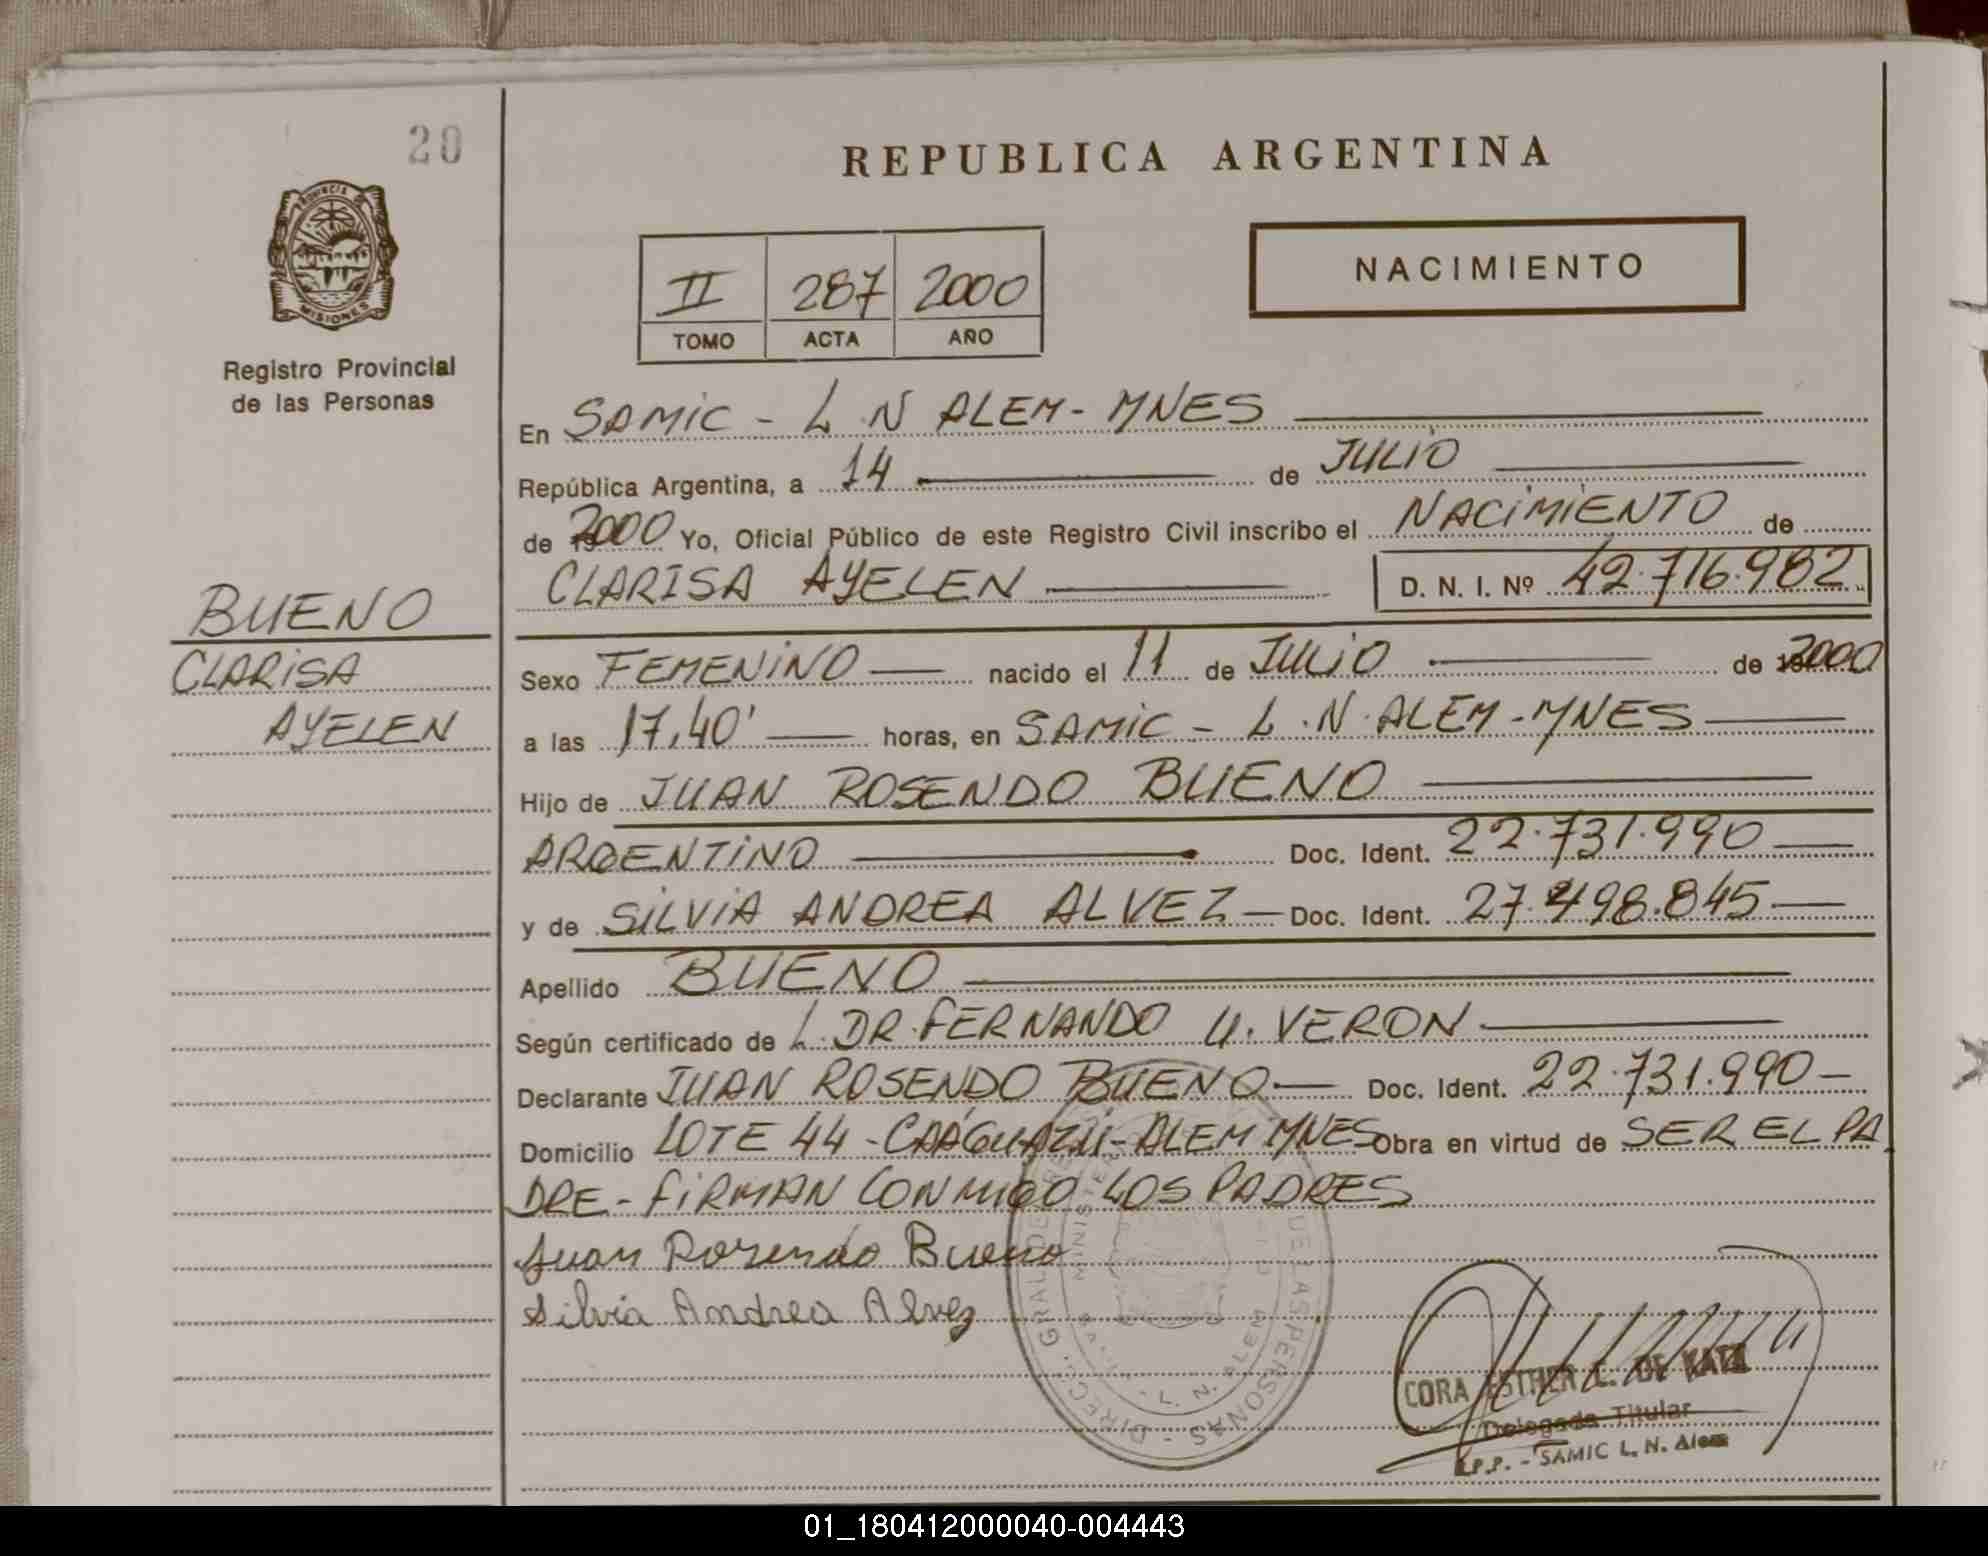 20
REPUBLICA ARGENTINA
PROVINCIA DE
MISIONES
Registro Provincial
de las Personas
II 287 2000
TOMO ACTA AÑO
NACIMIENTO
En SAMIC - L N ALEM - MNES
República Argentina, a 14 de JULIO
de 2000 Yo, Oficial Público de este Registro Civil inscribo el NACIMIENTO de
CLARISA AYELEN D. N. I. Nº 42.716.982
BUENO
CLARISA
AYELEN
Sexo FEMENINO nacido el 11 de JULIO de 2000
a las 17,40' horas, en SAMIC - L.N. ALEM - MNES
Hijo de JUAN ROSENDO BUENO
ARGENTINO Doc. Ident. 22.731.990
y de SILVIA ANDREA ALVEZ Doc. Ident. 27.498.845
Apellido BUENO
Según certificado de L. DR. FERNANDO U. VERON
Declarante JUAN ROSENDO BUENO Doc. Ident. 22.731.990
Domicilio LOTE 44 - CAAGUAZU - ALEM MNES Obra en virtud de SER EL PA
DRE - FIRMAN CONMIGO LOS PADRES
Juan Rosendo Bueno
Silvia Andrea Alvez
DIREC. GRAL. DE LAS PERSONAS
L. N. ALEM
CORA ESTHER L. DE KATZ
Delegada Titular
R.P.P. - SAMIC L. N. Alem
01_180412000040-004443